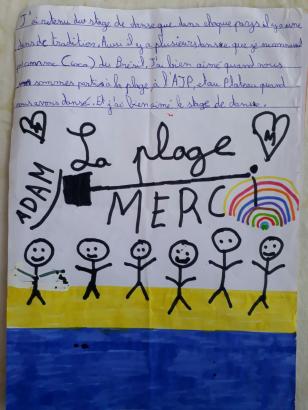 J'ai retenu du stage de danse que dans chaque pays il y a une
danse de tradition. Aussi il y a plusieurs danse que je
comme (Coca) du Brésil. J'ai bien aimé quand nous
sommes partis à la plage à l'AJP, et au Plateau quand
nous avons dansé. Et j'ai bien aimé le stage de danse.
ADAM
La plage
MERCI